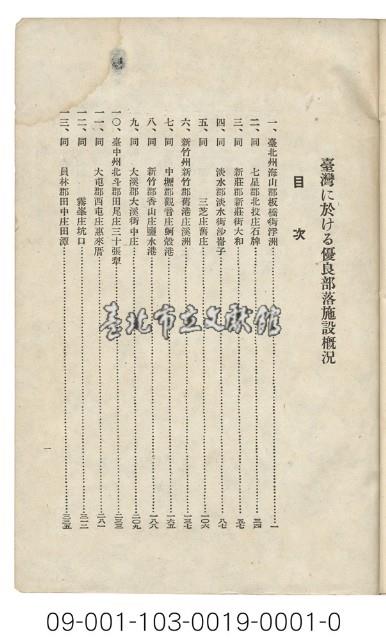 臺灣に於ける優良部落施設概況
目次
一、臺北州海山郡板橋街浮洲……一
二、同 七星郡北投庄石牌……三四
三、同 新莊郡新莊街大和……五七
四、同 淡水郡淡水街沙崙子……八七
五、同 三芝庄舊庄……一〇六
六、新竹州新竹郡舊港庄溪洲……一三七
七、同 中壢郡觀音庄蚵殼港……一六五
八、同 新竹郡香山庄鹽水港……一八六
九、同 大溪郡大溪街中庄……二〇九
一〇、臺中州北斗郡田尾庄三十張犁……二三三
一一、同 大屯郡西屯庄惠來厝……二八一
一二、同 霧峯庄坑口……三一二
一三、同 員林郡田中庄田潭……三三五
一
臺北市立文獻館
09-001-103-0019-0001-0